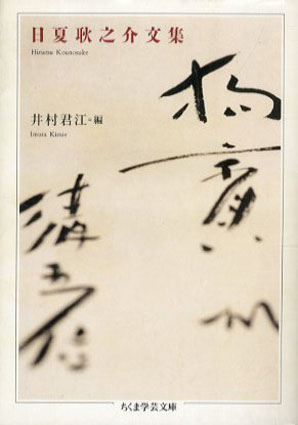 日夏耿之介文集
Hinatsu Kounosuke
井村君江=編
Imura Kimie
ちくま学芸文庫